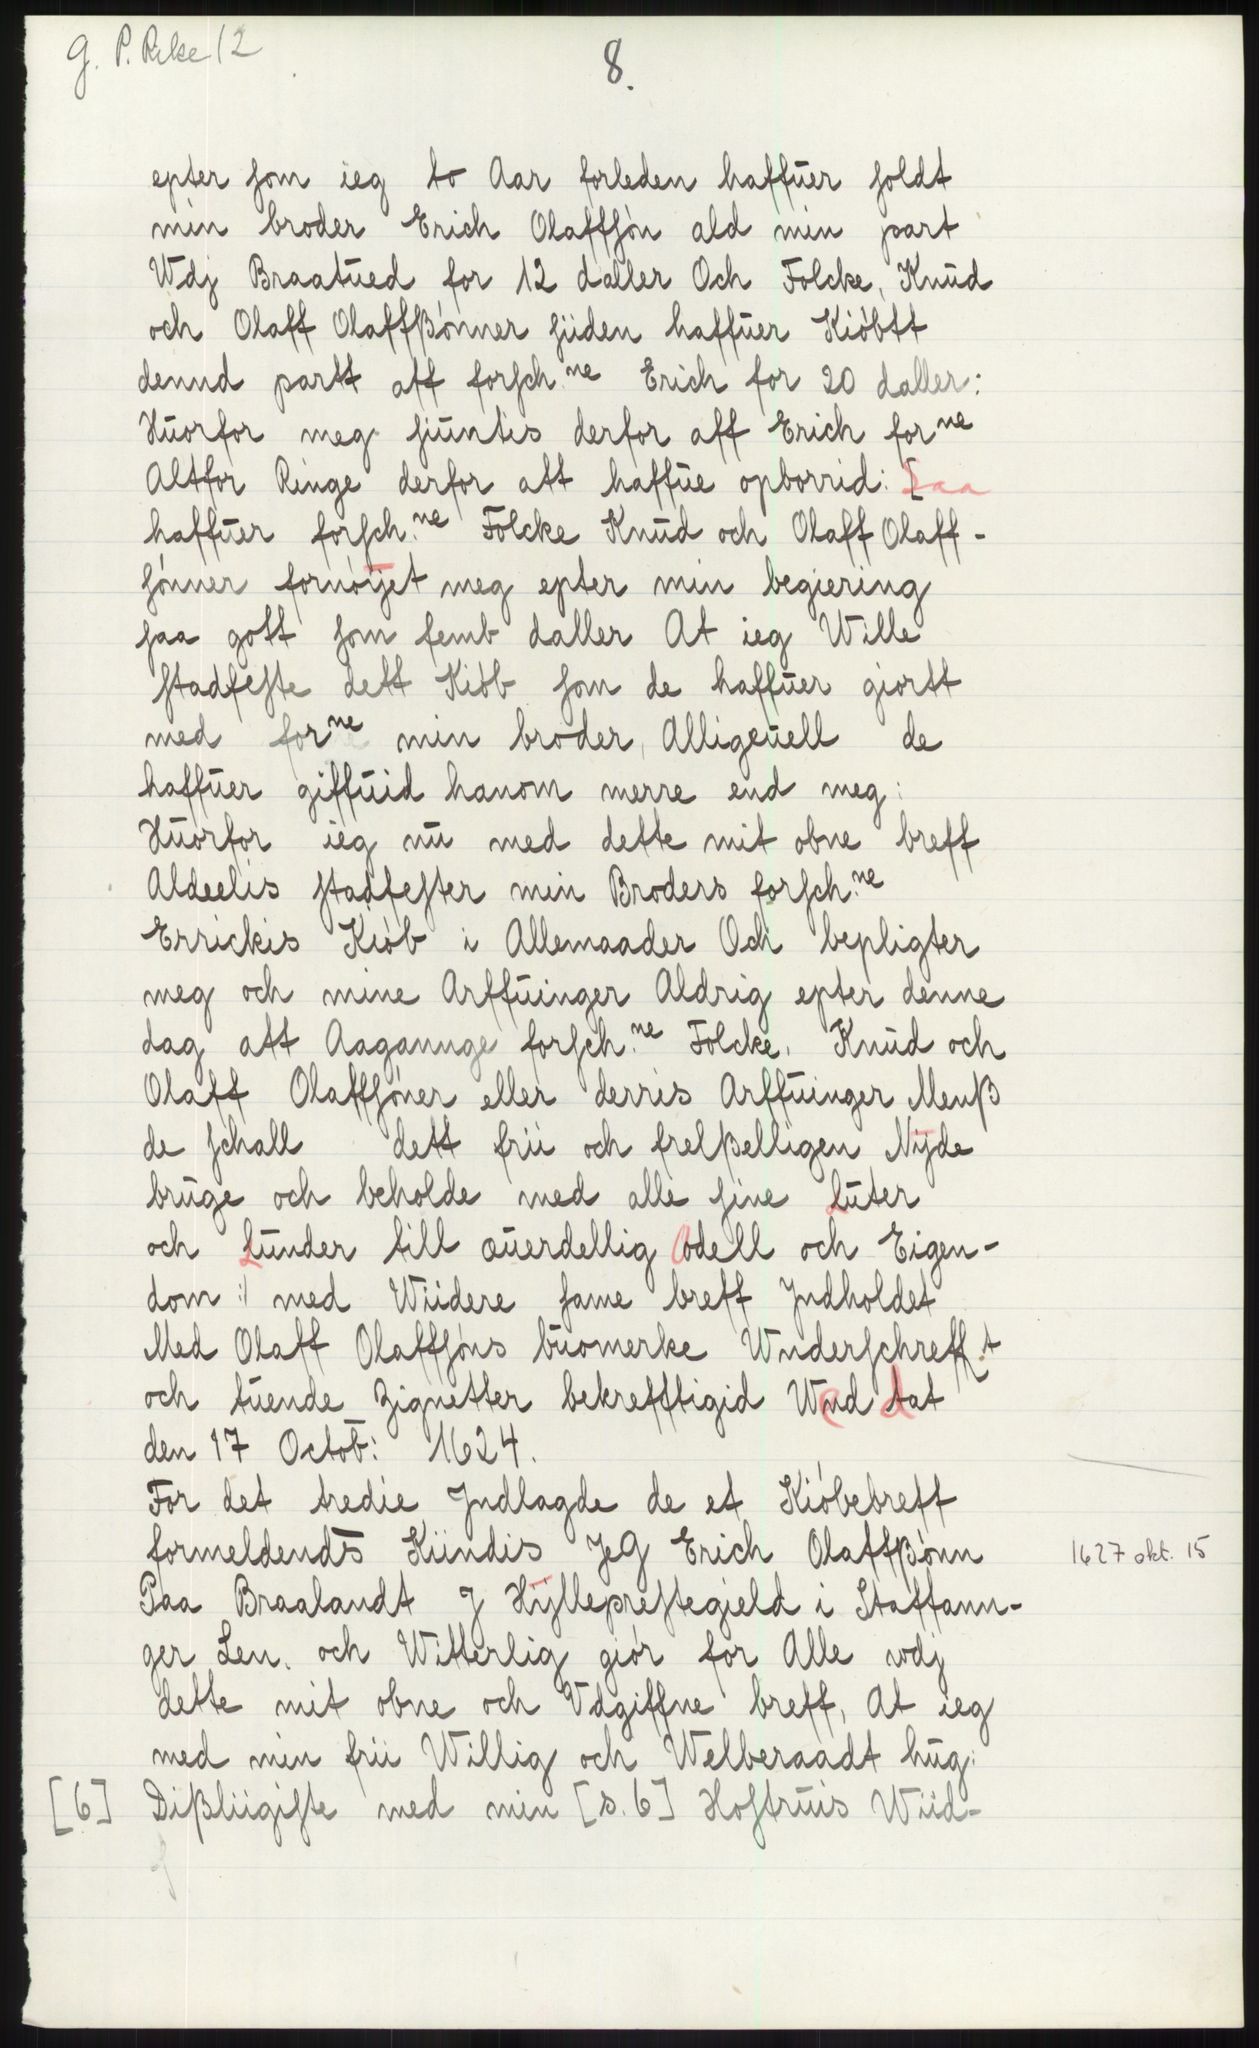 g. P. Reke 12
8.
epter som ieg to Aar forleden haffuer soldt
min broder Erich Olaffsøn ald min part
Wdj Braatued for 12 daller Och Folcke, Knud
och Olaff Olaffßønner siiden haffuer Kiøbtt
dennd partt aff forsch:ne Erich for 20 daller:
Huorfor meg siuntis derfor aff Erich forne
Altfor Ringe derfor att haffue opborrid: Saa
haffuer forsch:ne Folcke Knud och Olaff Olaff-
sønner fornøÿet meg epter min begiering
saa gott som femb daller At ieg Wille
stadfeste dett Kiøb som de haffuer giortt
med forne min broder, Alligeuell de
haffuer giffuid hanom merre end meg:
Huorfor ieg nu med dette mit obne breff
Aldeelis stadfester min Broders forsch:ne
Errickis Kiøb i Allemaader Och bepligter
meg och mine Arffuinger Aldrig epter denne
dag att Aagannge forsch:ne Folcke, Knud och
Olaff Olaffsøner eller derris Arffuinger Menß
de schall dett frii och frelßelligen Nÿde
bruge och beholde med alle sine Luter
och Lunder till ouerdellig Odell och Eigen-
dom :/ med Wiidere same breff Jndholdet
Med Olaff Olaffsøns buomerke Wnderschrefft
och tuende Zignetter bekrefftigid Wnd dat
den 17 Octob: 1624.
For det tredie Jndlagde de et Kiøbebreff
formeldends Kiindis JeG Erich Olaffßønn
1627 okt. 15
Paa Braalandt J Hÿllepresteгield i Staffann-
ger Len, och Witterlig giør for Alle wdj
dette mit obne och Vdgiffne breff, At ieg
med min frii Willig och Welberaadt hug:
[6] Dißliigiste med min [s. 6] Hostruis Wiid-